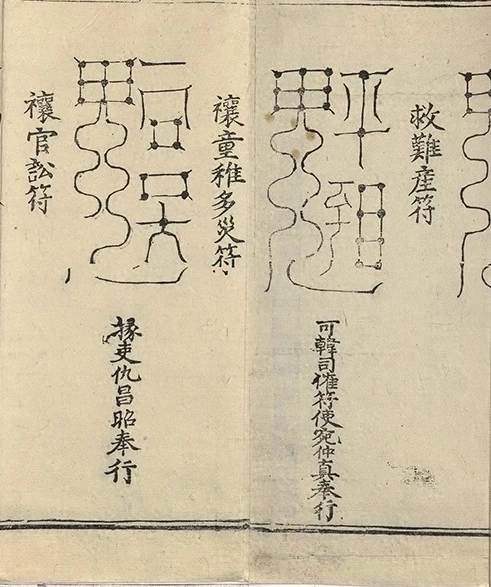 救難産符
可韓司催符使宛仲真奉行
禳童稚多災符
掾吏仇昌昭奉行
禳官訟符